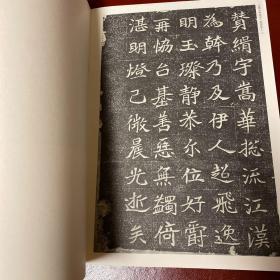 緝宇嵩華挹流江漢
為幹乃及伊人超飛逸
明玉璨靜恭尔位好爵
再協台基善惡無獨倚
湛明燈已微晨光逝矣